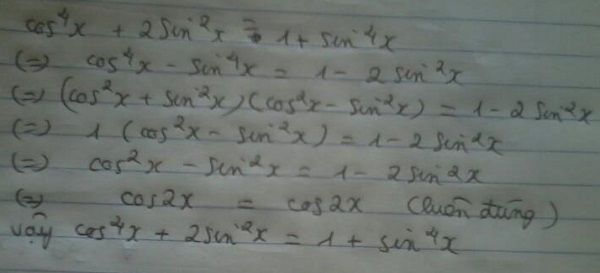 cos⁴x + 2sin²x = 1 + sin⁴x
(=) cos⁴x - sin⁴x = 1 - 2sin²x
(=) (cos²x + sin²x)(cos²x - sin²x) = 1 - 2sin²x
(=) 1 (cos²x - sin²x) = 1 - 2sin²x
(=) cos²x - sin²x = 1 - 2sin²x
(=) cos2x = cos2x (luôn đúng)
vậy cos⁴x + 2sin²x = 1 + sin⁴x